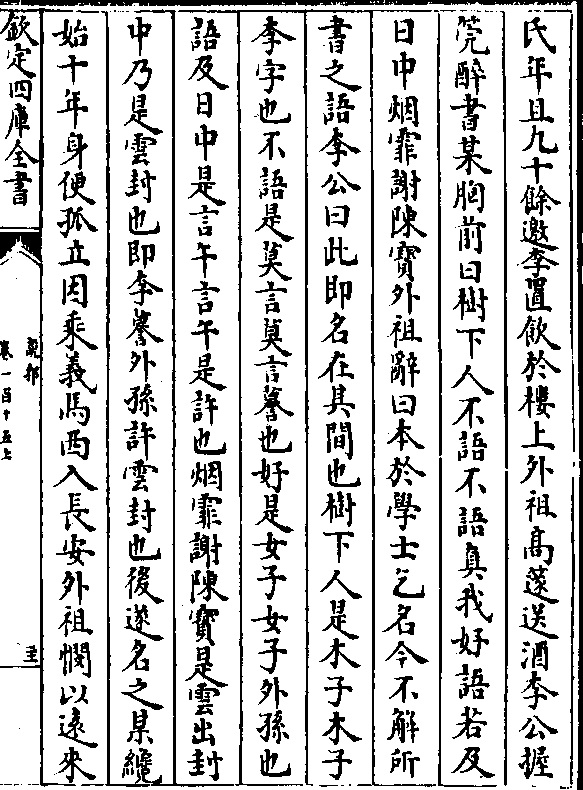 氏年且九十餘邀李置飲於樓上外祖高蓬送酒李公握
筦醉書某胸前曰樹下人不語不語真我好語若及
日中烟霏謝陳寳外祖辭曰本於學士乞名今不解所
書之語李公曰此即名在其間也樹下人是木子木子
李字也不語是莫言莫言謩也好是女子女子外孫也
語及日中是言午言午是許也烟霏謝陳寳是雲出封
中乃是雲封也即李謩外孫許雲封也後遂名之某纔
始十年身便孤立因乘義馬西入長安外祖憫以遠來
欽定四庫全書
説郛
卷一百十五上